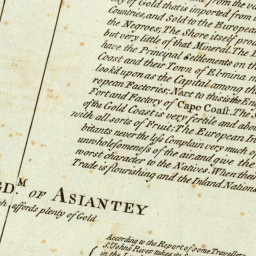 of Gold that is imported from the va
Countries, and Sold to the European
the Negroes; The Shore itself produ
but very little of that Mineral. The
have the Principal Settlements on th
Coast and their Town of Elmina
look'd upon as the Capital among th
ropean Factories: Next to this is the En
Fort and Factory of Cape Coast. The S
of the Gold Coast is very fertile and abou
with all sorts of Fruit: The European In
bitants never the less Complain very much o
unwholesomeness of the air, and give the
worst character to the Natives. When then
Trade is flourishing and the Inland Nation
GD.M OF ASIANTEY
ch affords plenty of Gold
According to the Report of some Traveller
St. Johns River takes its
in the